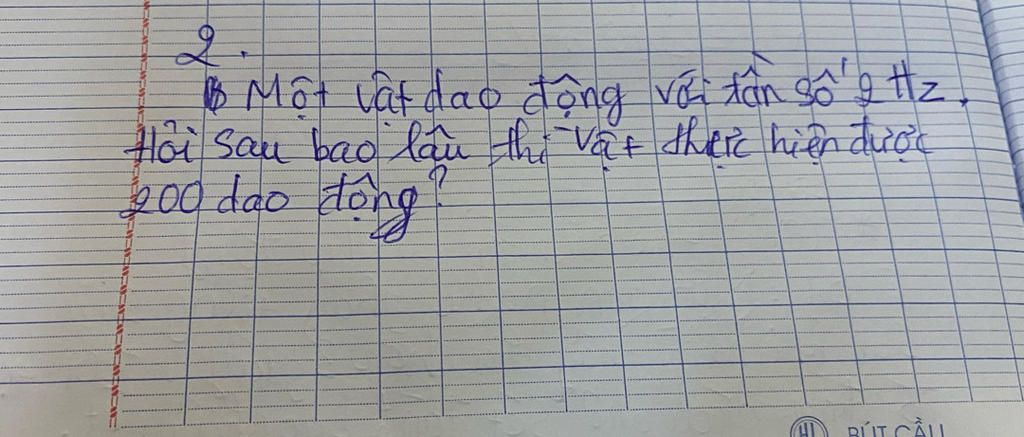 2.
Một vật dao động với tần số 2 Hz.
Hỏi sau bao lâu thì vật thực hiện được
200 dao động?
HI BÚT CẦU